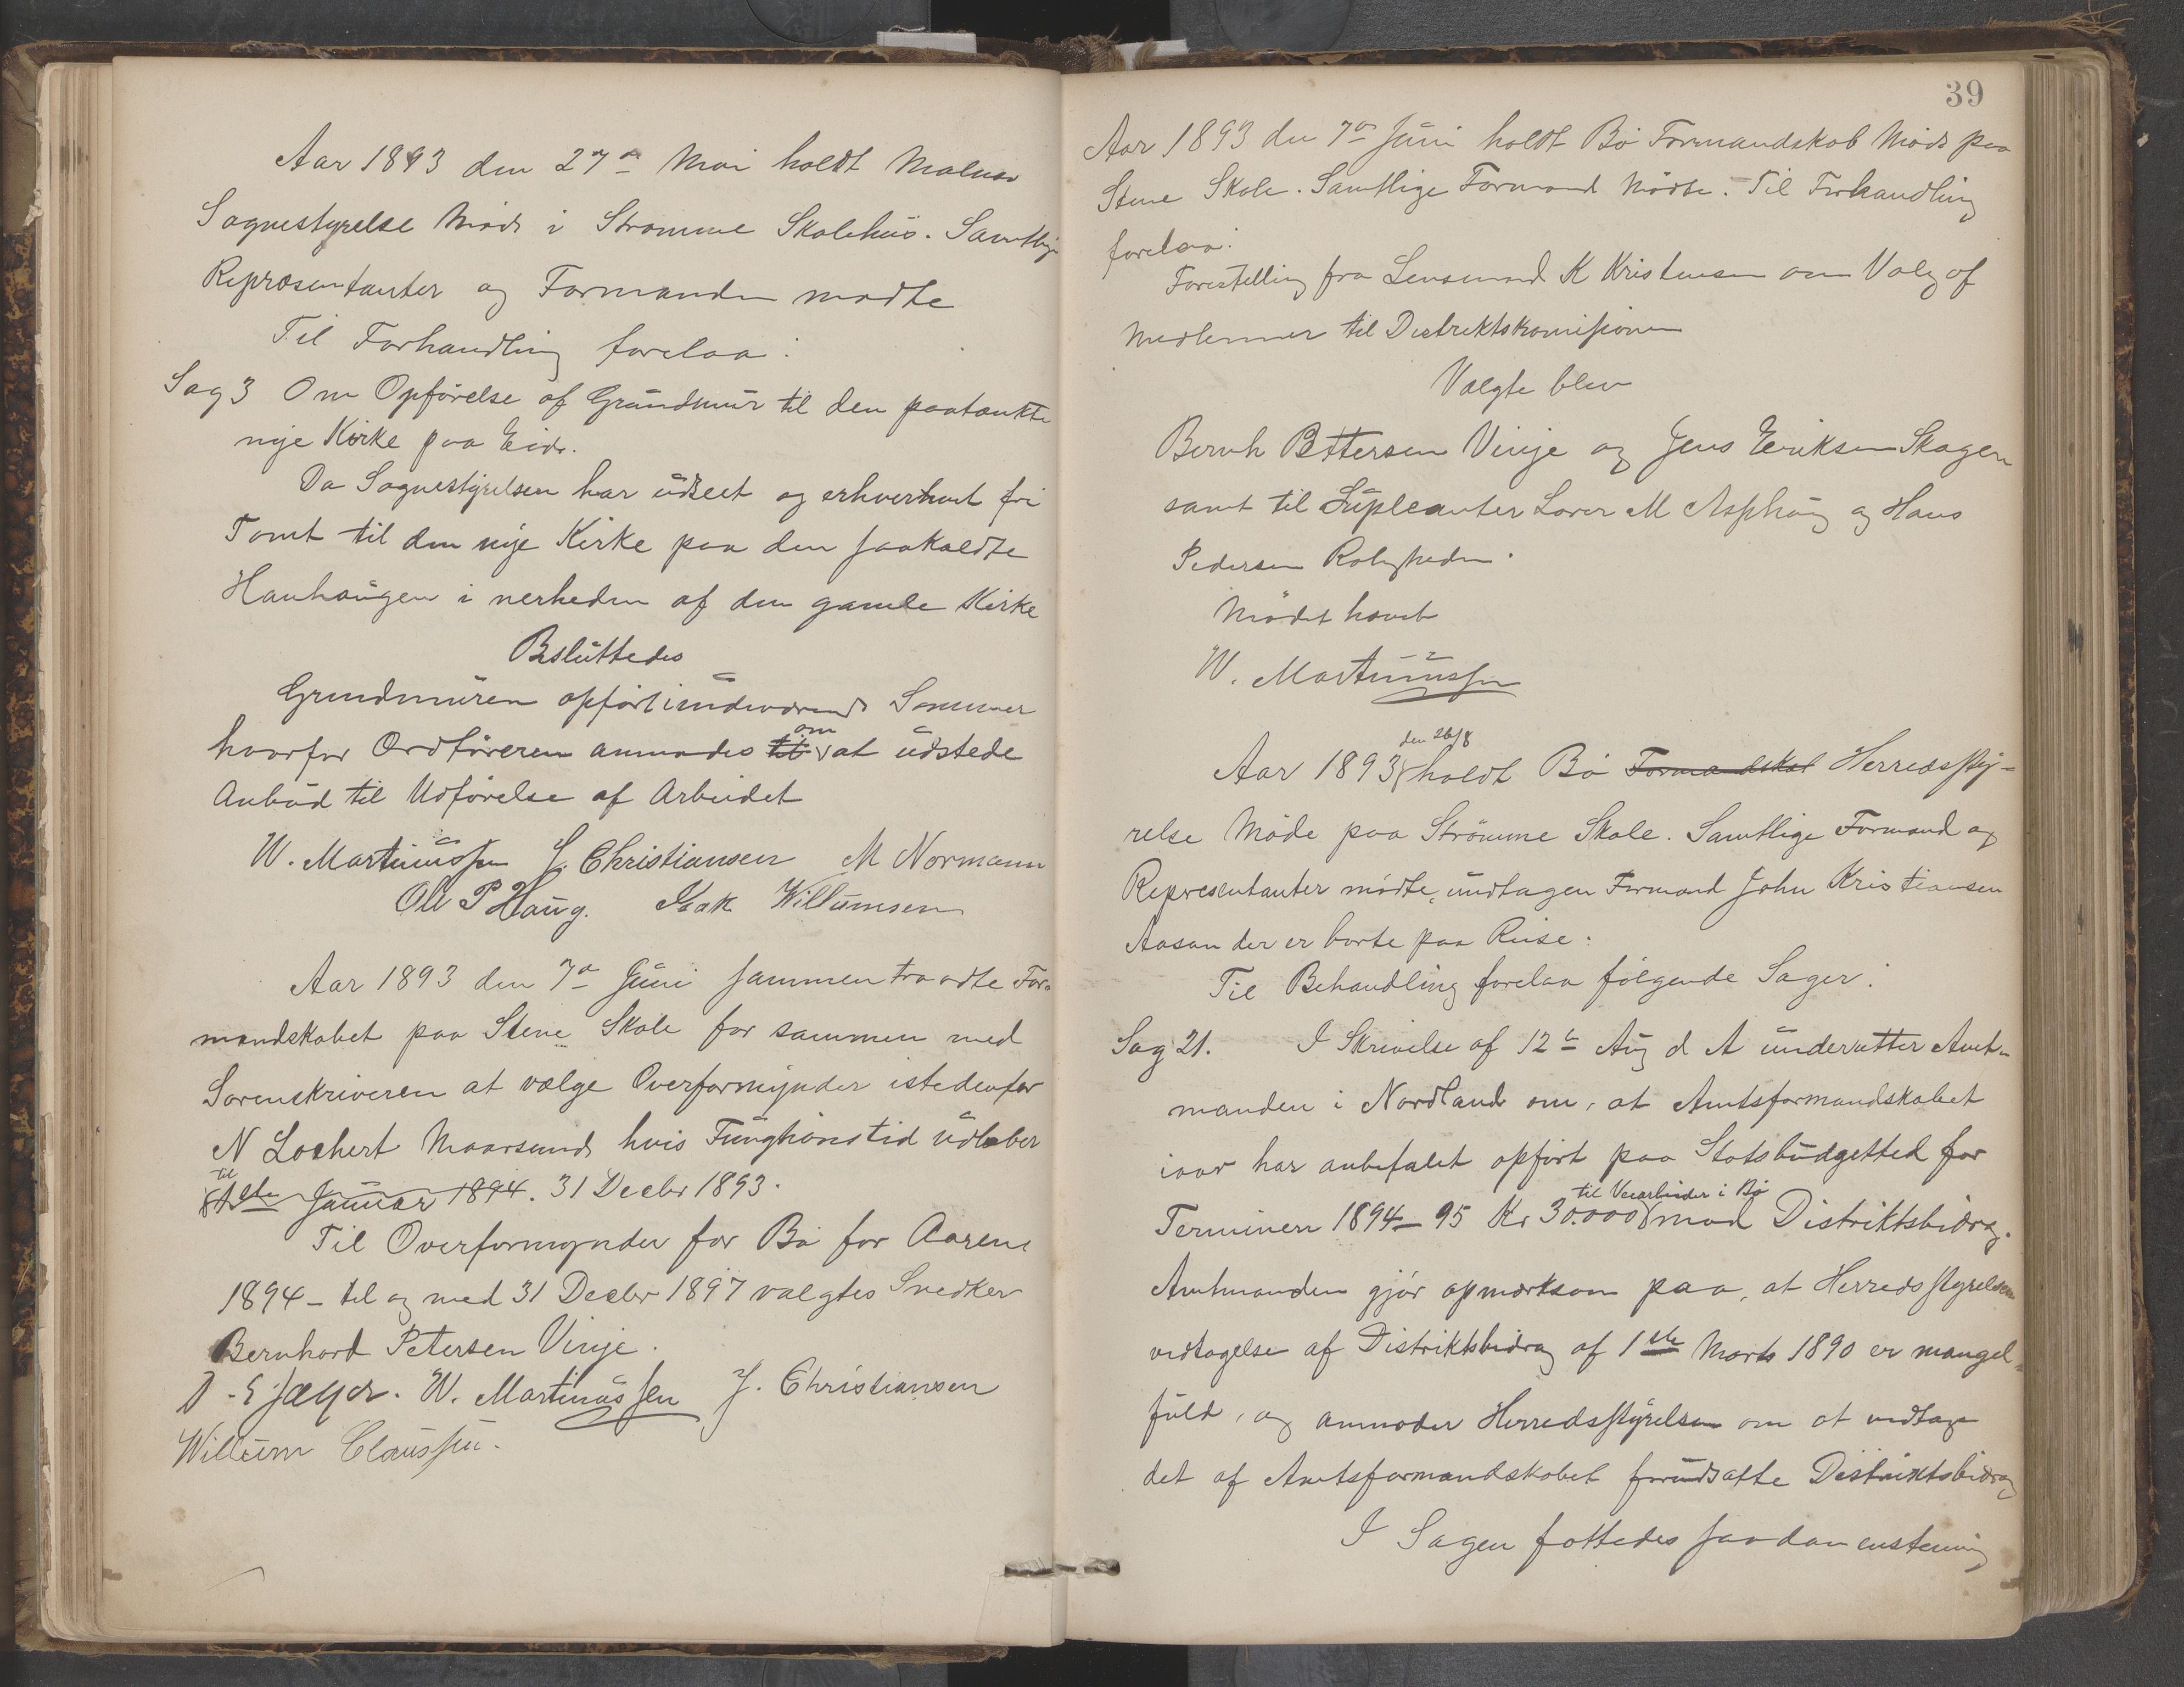 Aar 1893 den 27de Mai holdt Malnes
Sognestyrelse Møde i Strømme Skolehus. Samtlige
Repræsentanter og Formænden mødte
Til Forhandling forelaa:
Sag 3 Om Opførelse af Grundmur til den paatænkte
nye Kirke paa Eide.
Da Sognestyrelsen har udseet og erhvervet fri
Tomt til den nye Kirke paa den saakaldte
Hanhaugen i nerheden af den gamle Kirke
Besluttedes
Grundmuren opført indeværende Sommer
hvorfor Ordføreren anmodes til om at udstede
Anbud til Udførelse af Arbeidet
W. Martinussen J. Christiansen M Normann
Ole P Haug. Isak Willumsen
Aar 1893 den 7de Juni sammentraadte For-
mandskabet paa Steine Skole for sammen med
Sorenskriveren at vælge Overformynder istedenfor
N Lochert Maarsund hvis Funghonstid udløber
til
1ste Januar 1894. 31 Decbr 1893.
Til Overformynder for Bø for Aarene
1894 - til og med 31 Decbr 1897 valgtes Snedker
Bernhard Petersen Vinje.
J. Christiansen
W. Martinussen
Willum Claussen.
39
Aar 1893 den 7de Juni holdt Bø Formandskab Møde paa
Steine Skole. Samtlige Formænd Mødte. Til Forhandling
forelaa:
Forestilling fra Lensmand K Kristensen om Valg af
Medlemmer til Distriktskomisionen
Valgte blev
Bernh Pettersen Vinje og Jens Eriksen Skagen
samt til Supleanter Lærer M Asphaug og Hans
Pedersen Roligheden.
Mødet hævet
W. Martinussen
den 26/8
Aar 1893 holdt Bø Formandskab Herredssty-
relse Møde paa Strømme Skole. Samtlige Formænd og
Representanter mødte, undtagen Formand John Kristiansen
Aasan der er borte paa Reise.
Til Behandling forelaa følgende Sager:
Sag 21. I Skrivelse af 12te Aug d A underretter Amt-
manden i Nordland om, at Amtsformandskabet
iaar har anbefalet opført paa Statsbudgetted for
til Veiarbeider i Bø
Terminen 1894-95 Kr 30.000 mod Distriktsbidrag.
Amtmanden gjør opmærksom paa, at Herredsstyrelsens
vedtagelse af Distriktsbidrag af 1ste Marts 1890 er mangel-
fuld, og anmoder Herredsstyrelsen om at vedtage
det af Amtsformandskabet forudsatte Distriktsbidrag
I Sagen fattedes saadan enstemig